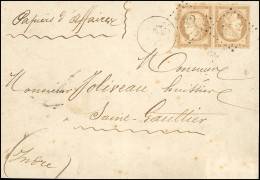 Papiers d'affaires
Monsieur
Monsieur Joliveau huissier
Saint-Gaultier
(Indre)